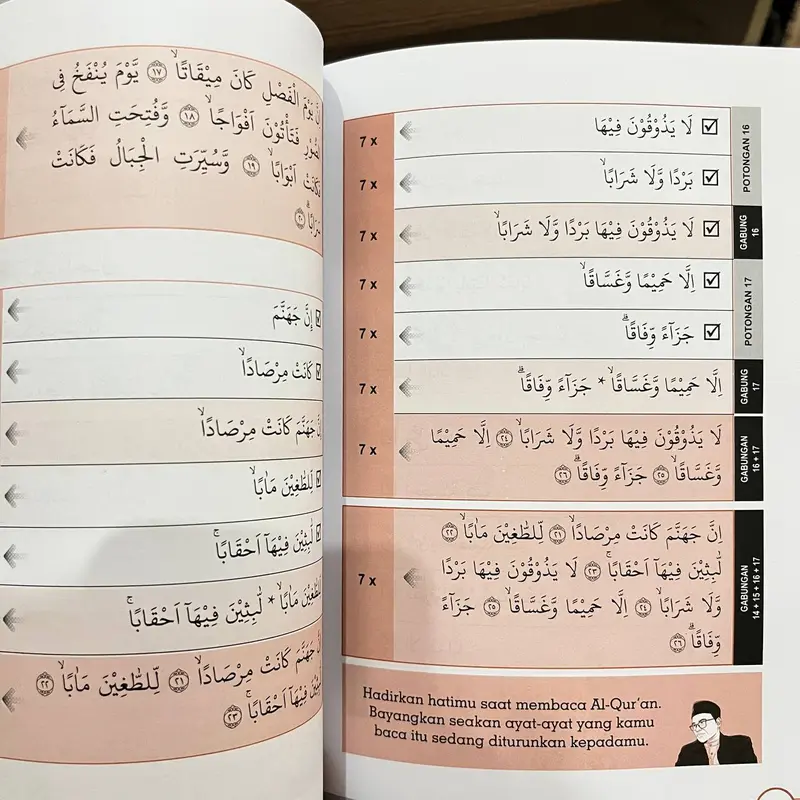 اِنَّ يَوْمَ الْفَصْلِ كَانَ مِيْقَاتًاۙ ۝١٧ يَّوْمَ يُنْفَخُ فِى
الصُّوْرِ فَتَأْتُوْنَ اَفْوَاجًاۙ ۝١٨ وَّفُتِحَتِ السَّمَاۤءُ
فَكَانَتْ اَبْوَابًاۙ ۝١٩ وَّسُيِّرَتِ الْجِبَالُ فَكَانَتْ
سَرَابًاۗ ۝٢٠
اِنَّ جَهَنَّمَ
كَانَتْ مِرْصَادًاۙ
اِنَّ جَهَنَّمَ كَانَتْ مِرْصَادًاۙ
لِّلطّٰغِيْنَ مَاٰبًاۙ
لّٰبِثِيْنَ فِيْهَآ اَحْقَابًاۚ
لِّلطّٰغِيْنَ مَاٰبًاۙ * لّٰبِثِيْنَ فِيْهَآ اَحْقَابًاۚ
اِنَّ جَهَنَّمَ كَانَتْ مِرْصَادًاۙ ۝٢١ لِّلطّٰغِيْنَ مَاٰبًاۙ ۝٢٢
لّٰبِثِيْنَ فِيْهَآ اَحْقَابًاۚ ۝٢٣
POTONGAN 16
لَا يَذُوْقُوْنَ فِيْهَا
7 x
بَرْدًا وَّلَا شَرَابًاۙ
7 x
GABUNG 16
لَا يَذُوْقُوْنَ فِيْهَا بَرْدًا وَّلَا شَرَابًاۙ
7 x
POTONGAN 17
اِلَّا حَمِيْمًا وَّغَسَّاقًاۙ
7 x
جَزَاۤءً وِّفَاقًاۗ
7 x
GABUNG 17
اِلَّا حَمِيْمًا وَّغَسَّاقًاۙ * جَزَاۤءً وِّفَاقًاۗ
7 x
GABUNGAN 16 + 17
لَا يَذُوْقُوْنَ فِيْهَا بَرْدًا وَّلَا شَرَابًاۙ ۝٢٤ اِلَّا حَمِيْمًا
وَّغَسَّاقًاۙ ۝٢٥ جَزَاۤءً وِّفَاقًاۗ ۝٢٦
7 x
GABUNGAN 14 + 15 + 16 + 17
اِنَّ جَهَنَّمَ كَانَتْ مِرْصَادًاۙ ۝٢١ لِّلطّٰغِيْنَ مَاٰبًاۙ ۝٢٢
لّٰبِثِيْنَ فِيْهَآ اَحْقَابًاۚ ۝٢٣ لَا يَذُوْقُوْنَ فِيْهَا بَرْدًا
وَّلَا شَرَابًاۙ ۝٢٤ اِلَّا حَمِيْمًا وَّغَسَّاقًاۙ ۝٢٥ جَزَاۤءً
وِّفَاقًاۗ ۝٢٦
7 x
Hadirkan hatimu saat membaca Al-Qur'an.
Bayangkan seakan ayat-ayat yang kamu
baca itu sedang diturunkan kepadamu.